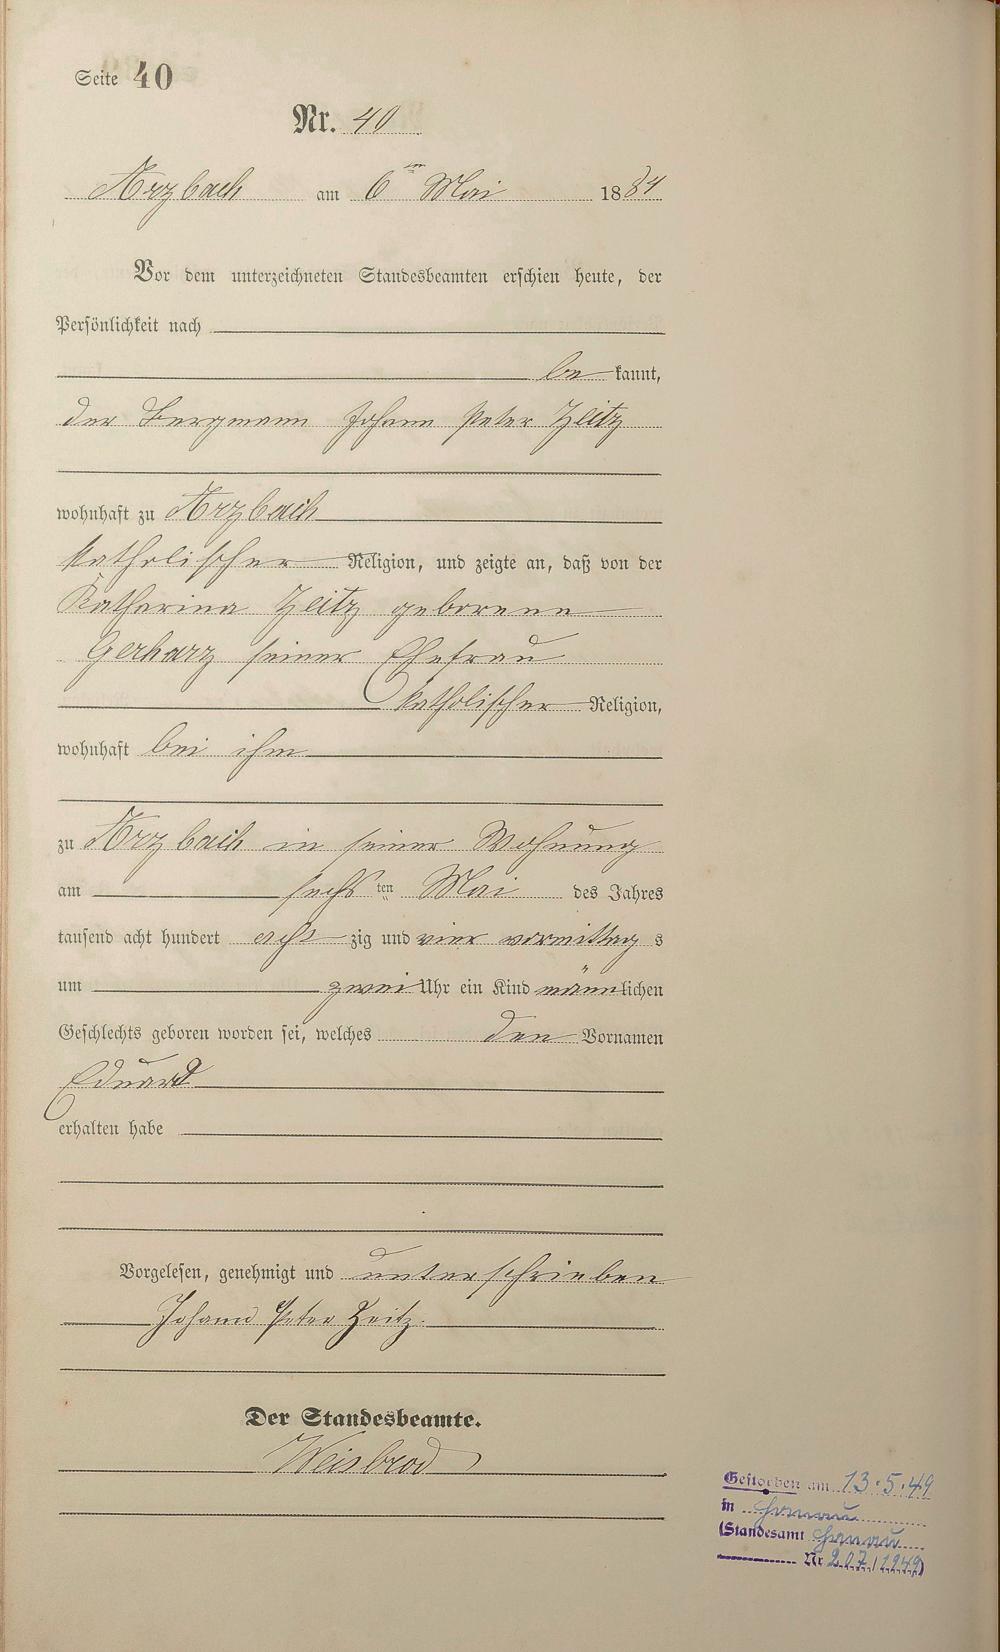 Seite 40
Nr. 40
Arzbach am 6ten Mai 1884
Vor dem unterzeichneten Standesbeamten erschien heute, der
Persönlichkeit nach
be kannt,
der Bergmann Johann Peter Zeitz
wohnhaft zu Arzbach
katholischer Religion, und zeigte an, daß von der
Katharina Zeitz geborene
Gerharz seiner Ehefrau
katholischer Religion,
wohnhaft bei ihm
zu Arzbach in seiner Wohnung
am sechs ten Mai des Jahres
tausend acht hundert acht zig und vier vormittag s
um zwei Uhr ein Kind männlichen
Geschlechts geboren worden sei, welches den Vornamen
Eduard
erhalten habe
Vorgelesen, genehmigt und unterschrieben
Johann Peter Zeitz.
Der Standesbeamte.
Weisbrod
Gestorben am 13.5.49
in Hanau
(Standesamt Hanau
Nr 207/1949)